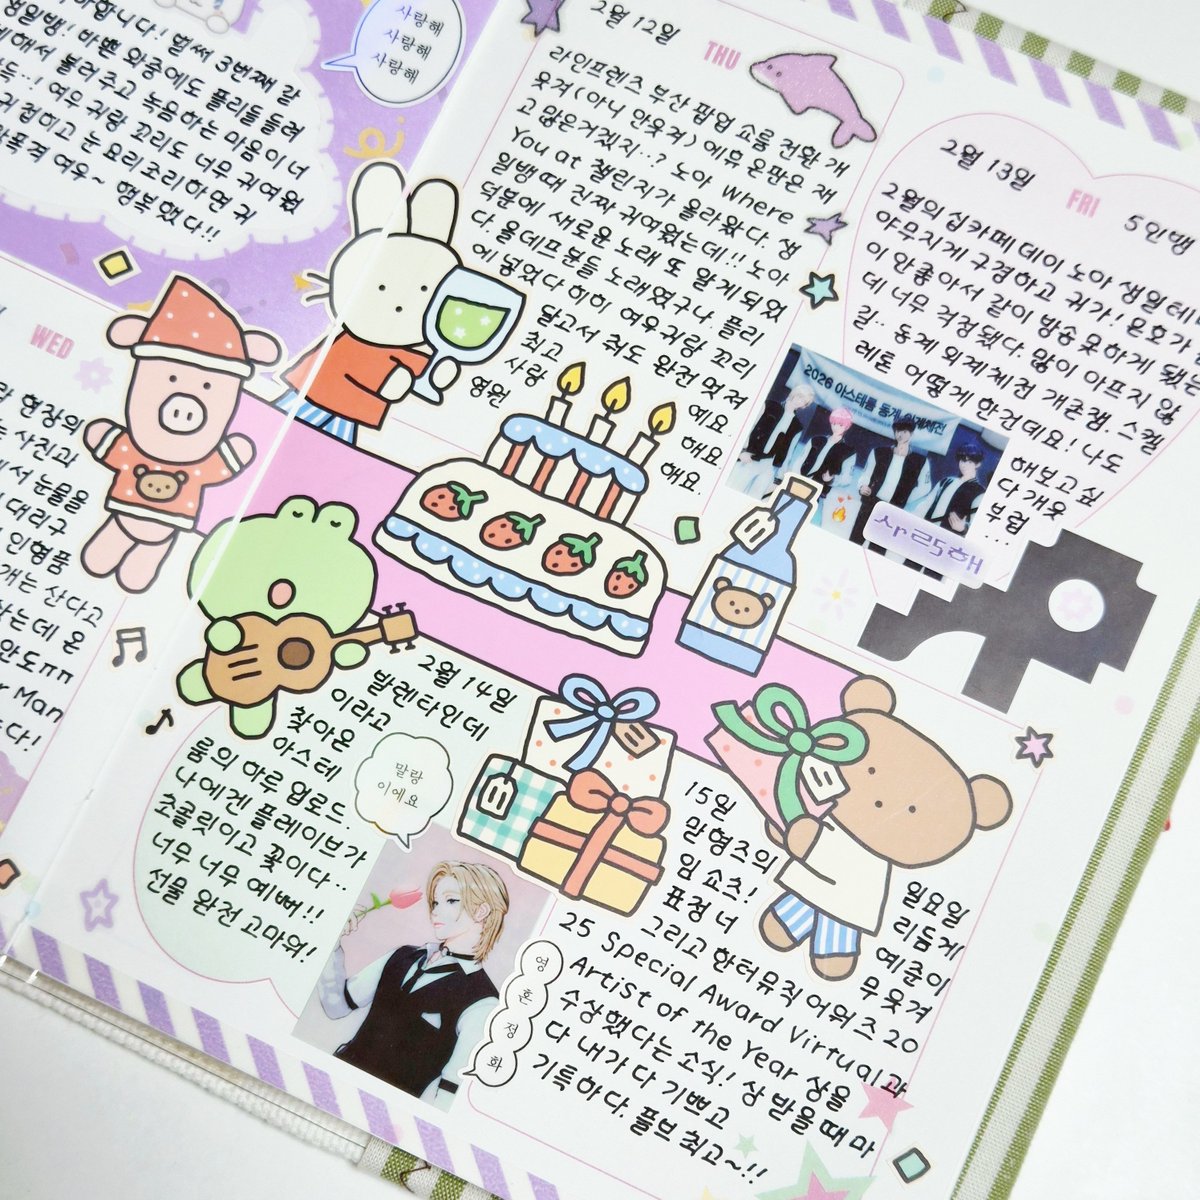 하합니다! 벌써 3번째 갈
생일방! 바쁜 와중에도 플리들 들려
해서 불러주고 녹음하는 마음이 너
득..! 여우 귀랑 꼬리도 너무 귀여웠
귀 접히고 눈 요리조리하면 귀
폭격 여우~ 행복했다!!
사랑해
사랑해
사랑해
WED
현장의
사진과
에서 눈물을
대리구
인형품
개는 산다고
하는데 온
안도ㅠㅠ
r Man
다!
2월 12일
THU
라인프렌즈 부산 팝업 쇼를 전환 개
웃겨(아니 안웃겨) 에뮤 온판은 재
고 많은거겠지..? 노아 Where
You at 챌린지가 올라왔다. 생
일뱅 때 진짜 귀여웠는데!! 노아
덕분에 새로운 노래 또 알게 되었
다. 올데프 분들 노래였구나. 플리
에 넣었다 히히 여우귀랑 꼬리
달고서 춰도 완전 멋져
최고 예요.
사랑 해요
영원 해요.
2월 13일
FRI
5인뱅
2월의 십카페데이 노아 생일테
야무지게 구경하고 귀가! 은호가
이 안좋아서 같이 방송 못하게 됐는
데 너무 걱정됐다. 많이 아프지 않
길.. 동계 외계체전 개굳잼. 스켈
레톤 어떻게 한건데요! 나도
해보고 싶
다 개웃
부럽...
2026 아스테룸 동계 외계체전
사랑해
2월 14일
발렌타인데
이라고
찾아온
아스테
룸의 하루 업로드.
나에겐 플레이브가
초콜릿이고 꽃이다..
너무 너무 예뻐!!
선물 완전 고마워!
말랑
이에요
영
혼
정
화
15일 일요일
맏형즈의 리듬게
임 쇼츠! 예준이
표정 너무 웃겨
그리고 한터뮤직어워즈 20
25 Special Award Virtual
Artist of the Year 상을
수상했다는 소식! 상 받을때마
다 내가 다 기쁘고
기특하다. 플브 최고~!!